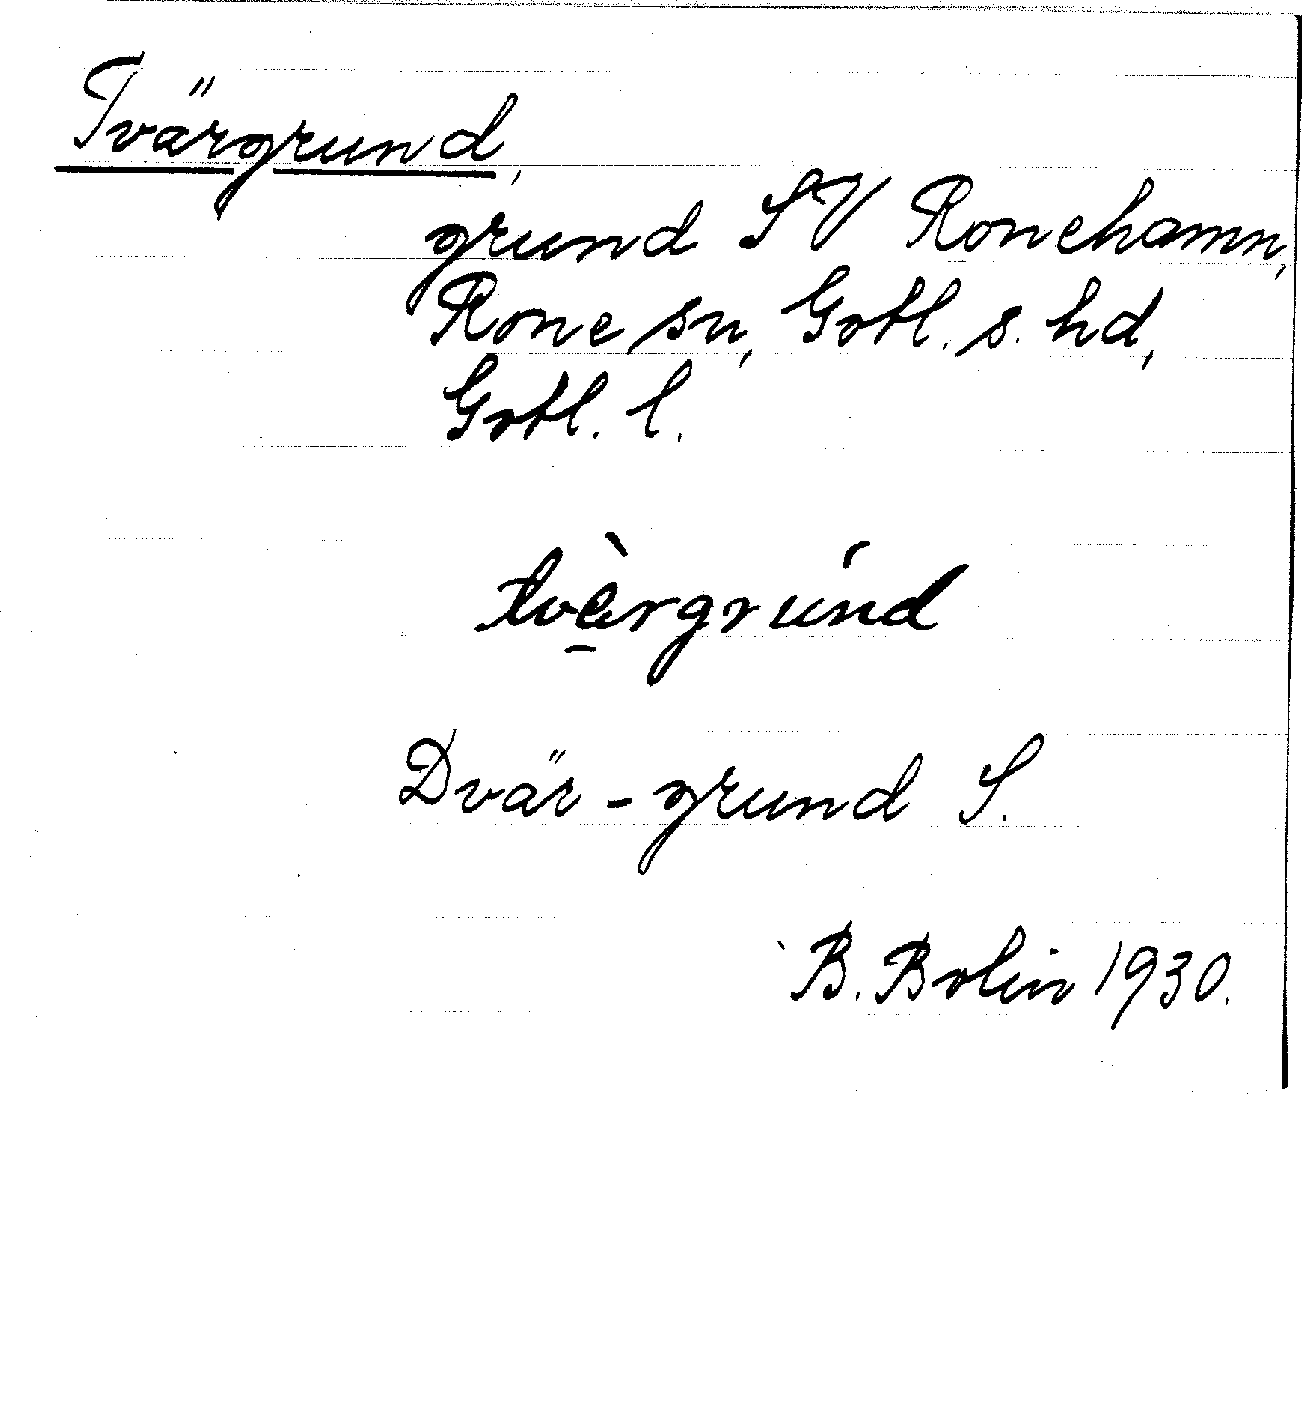 Tvärgrund,
grund SV Ronehamn,
Rone sn, Gotl. s. hd,
Gotl. l.
tvæ̀rgrúnd
Dvär-grund S.
B. Bolin 1930.